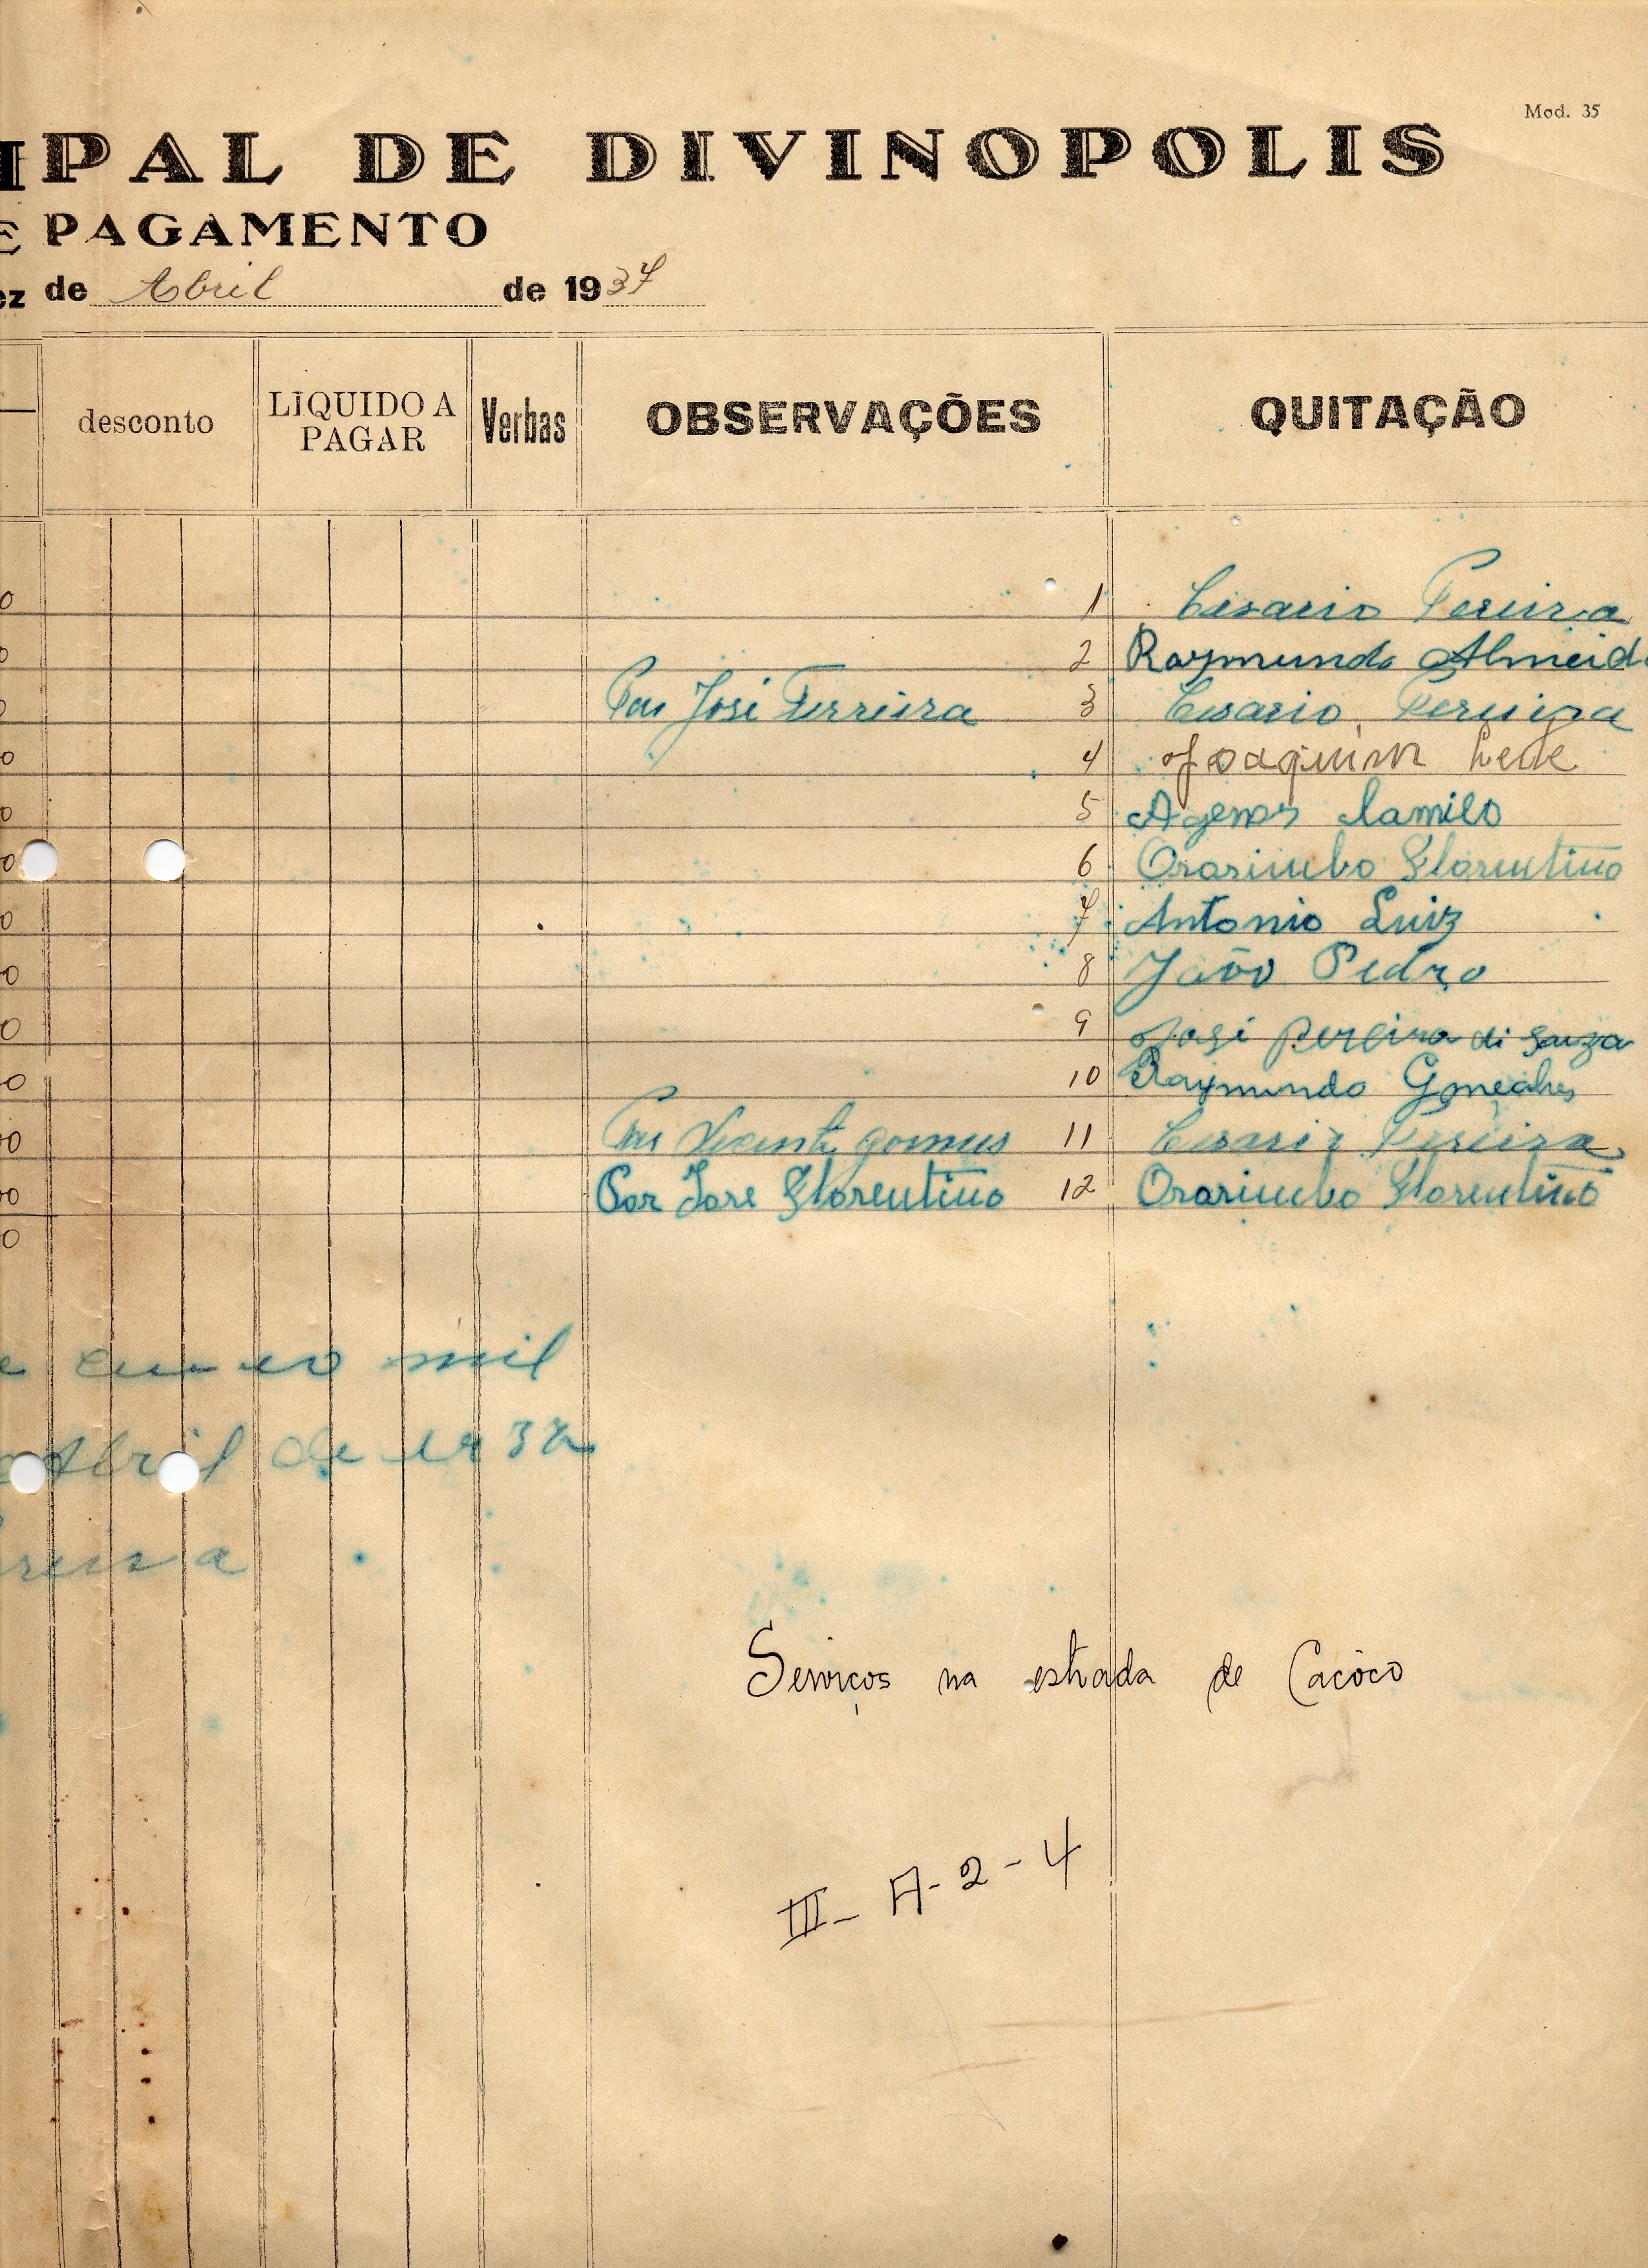 Mod. 35
IPAL DE DIVINOPOLIS
E PAGAMENTO
ez de Abril de 1937
desconto
LIQUIDO A PAGAR
Verbas
OBSERVAÇÕES
QUITAÇÃO
0 1 Cesario Pereira
0 2 Raymundo Almeid
0 Por José Ferreira 3 Cesario Pereira
0 4 Joaquim
0 5 Agenor Camilo
0 6 Orarimbo Florentino
0 7 Antonio Luiz
0 8 João Pedro
0 9 José Pereira di Souza
0 10 Raymundo Gonçalves
0 Por Vicente gomes 11 Cesario Pereira
0 Por Jose Florentino 12 Orarimbo Florentino
0
e mil
Abril de
reira
Serviços na estrada de Cacôco
III - A - 2 - 4